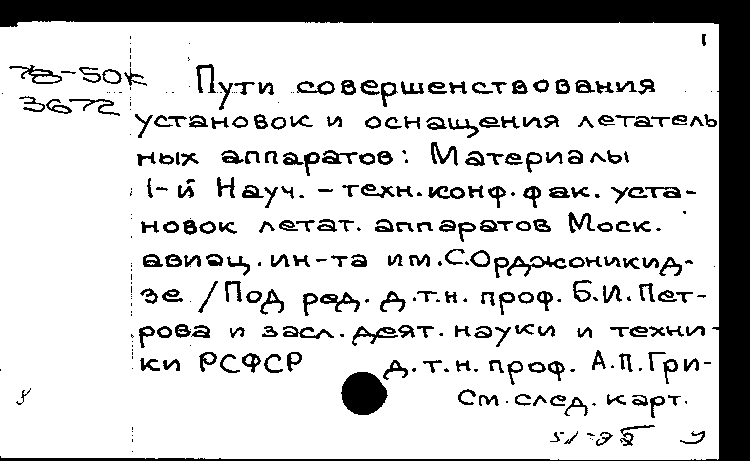 1
78-50к
3672
Пути совершенствования
установок и оснащения летатель
ных аппаратов: Материалы
1-й Науч.-техн.конф.фак. уста-
новок летат. аппаратов Моск.
авиац.ин-та им.С.Орджоникид-
зе /Под ред. д.т.н. проф. Б.И.Пет-
рова и засл.деят.науки и техни-
ки РСФСР д.т.н. проф. А.П.Гри-
См.след.карт.